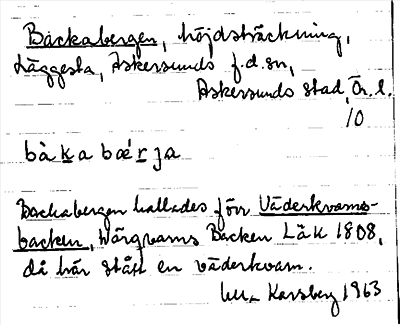 Backabergen, höjdsträckning,
Läggesta, Askersunds f.d. sn,
Askersunds stad, Ör. l.
10
bàkabǽrja
Backabergen kallades förr Väderkvarns-
backen, Wärqvarns Backen LäK 1808,
då här stått en väderkvarn.
Karsberg 1963